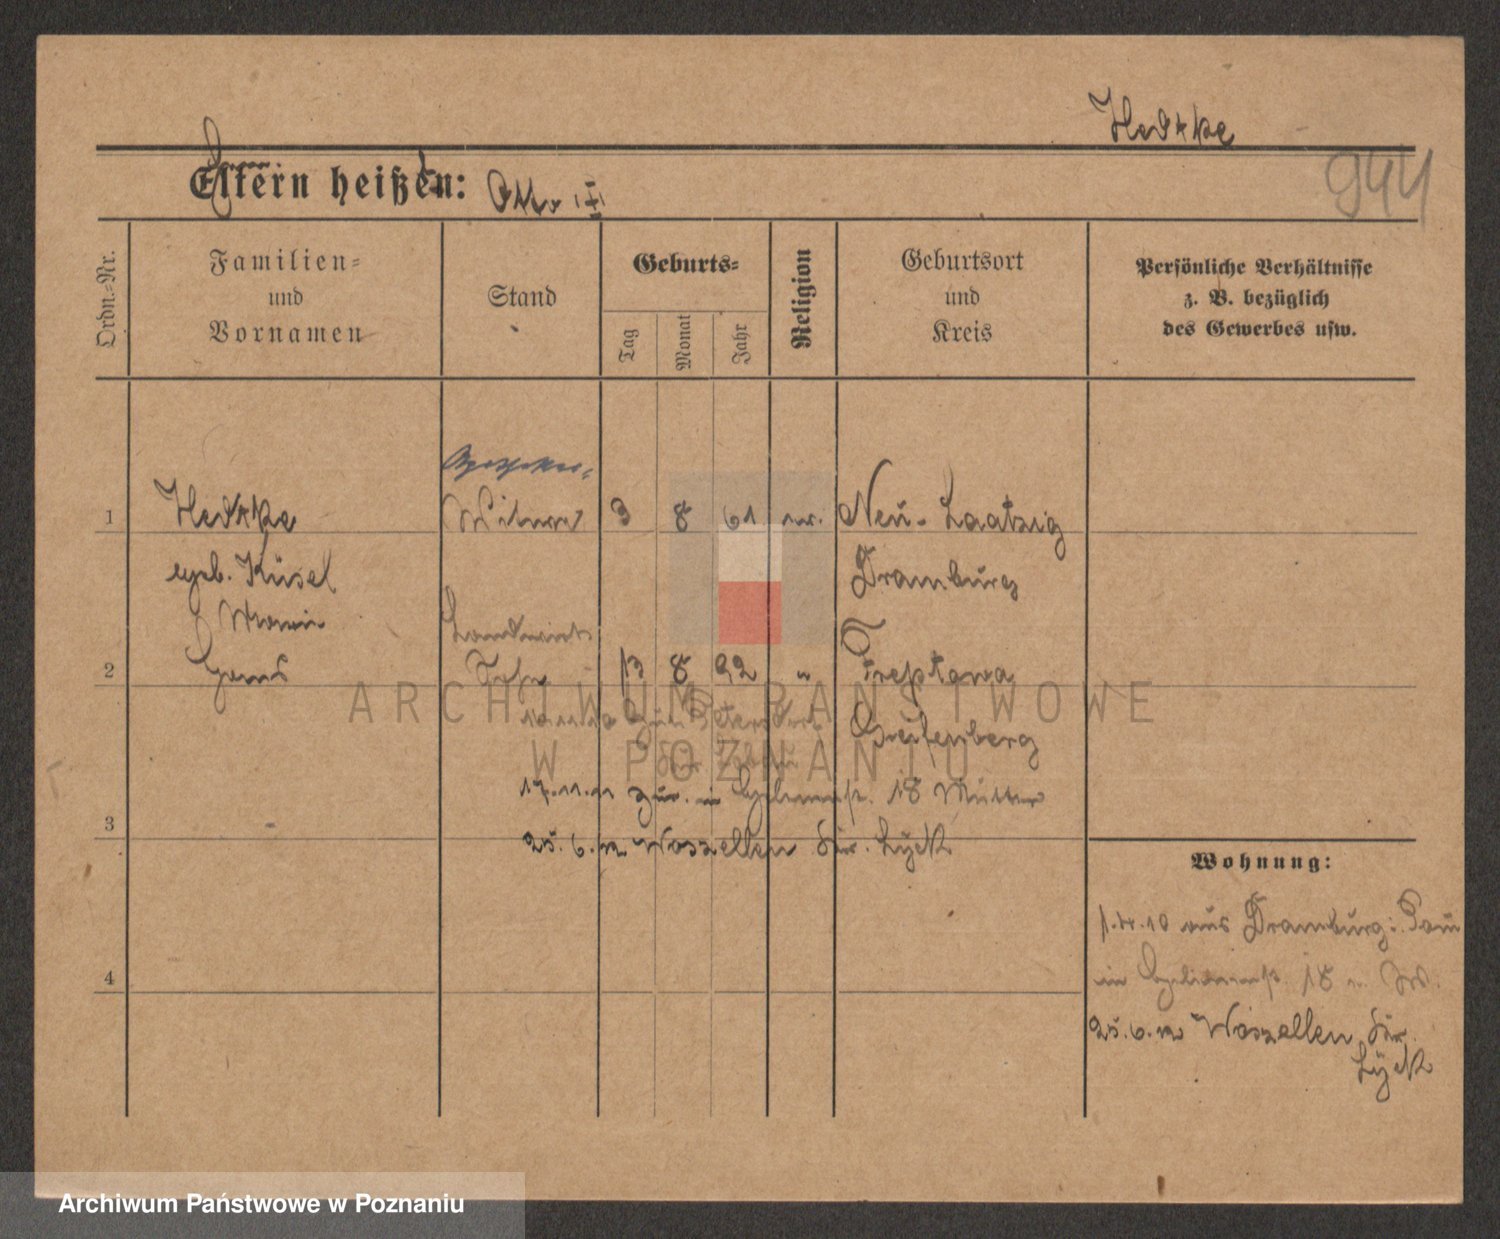 Hedtke
Eltern heißen: Otto III
944
Ordn.-Nr.
Familien-
und
Vornamen
Stand
Geburts-
Tag
Monat
Jahr
Religion
Geburtsort
und
Kreis
Persönliche Verhältnisse
z. B. bezüglich
des Gewerbes usw.
1
Hedtke
Witwe
3 8 61
Neu-Laatzig
geb. Küsel
Dramburg
Landwirts
2
Hans
Sohn
13 8 92 "
Treptow a
Greifenberg
17.11.11 zur. in 18 Mutter
3
25.6.12 Woszellen Kr. Lyck
Wohnung:
1.4.10 aus Dramburg
in 18
4
25.6.12 Woszellen Kr.
Lyck
ARCHIWUM PAŃSTWOWE
W POZNANIU
Archiwum Państwowe w Poznaniu